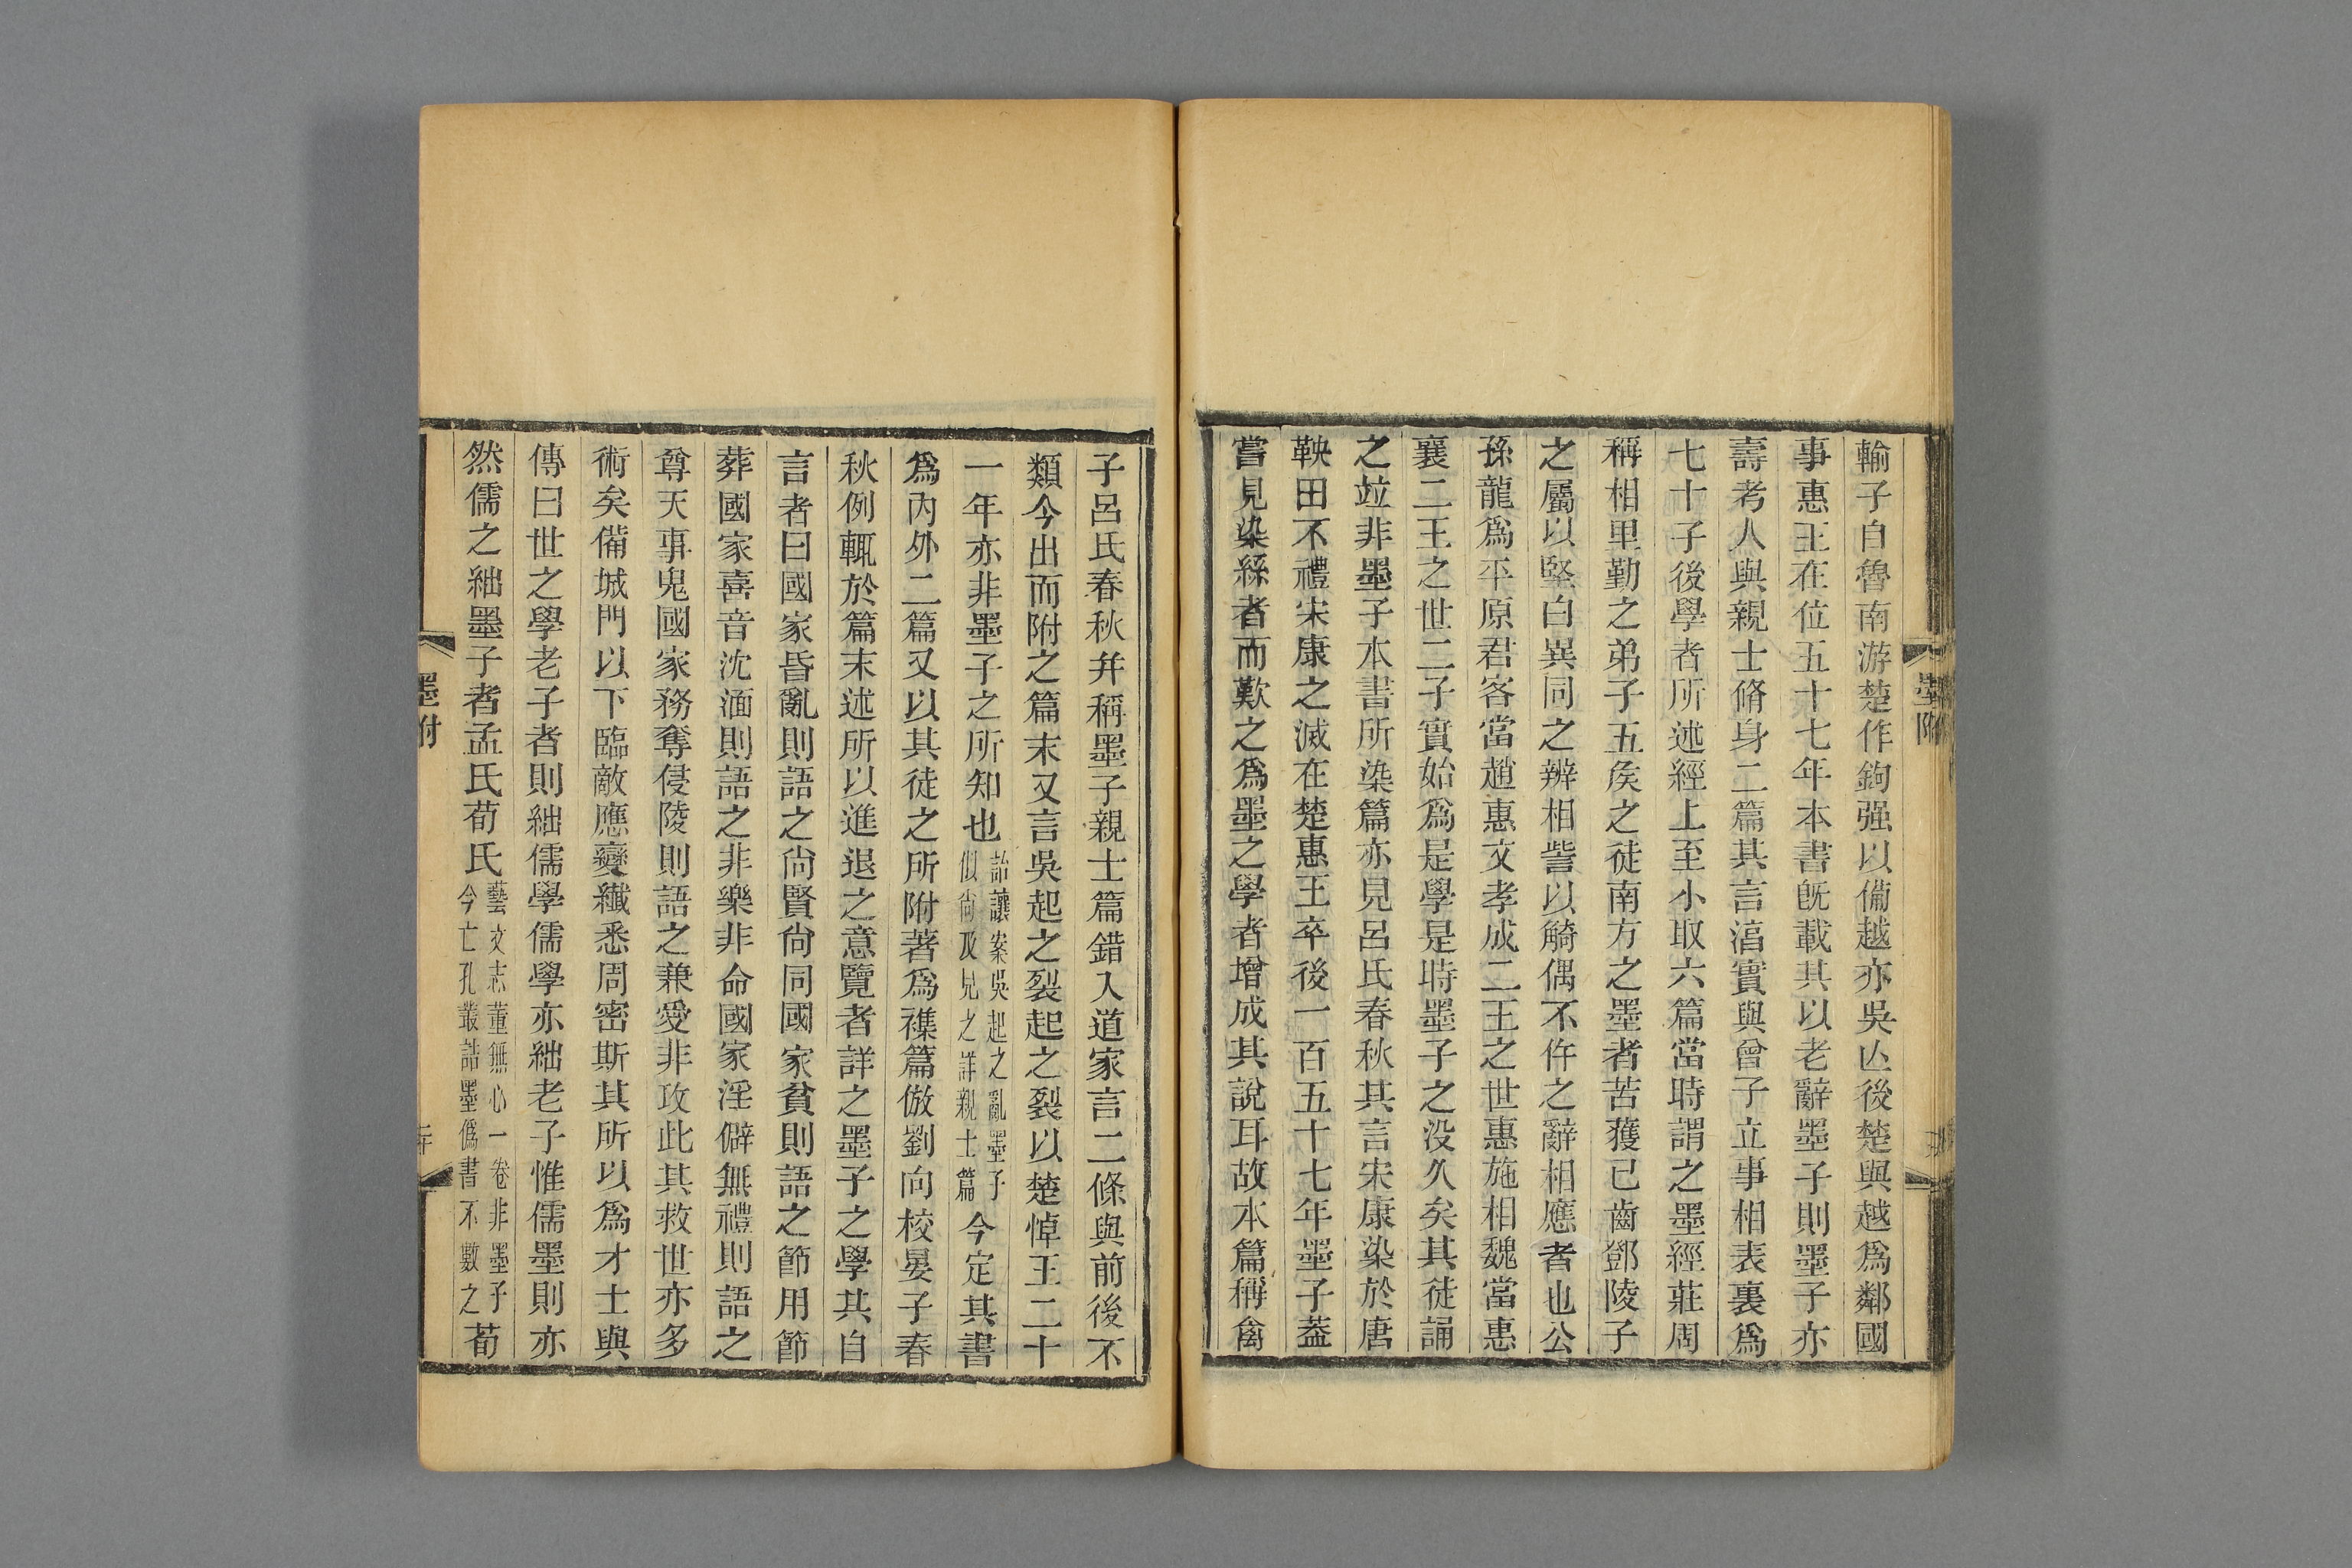 輸子自魯南游楚作鉤强以備越亦吳亾後楚與越爲鄰國
事惠王在位五十七年本書旣載其以老辭墨子則墨子亦
壽考人與親士脩身二篇其言湻實與曾子立事相表裏爲
七十子後學者所述經上至小取六篇當時謂之墨經莊周
稱相里勤之弟子五矦之徒南方之墨者苦獲已齒鄧陵子
之屬以堅白異同之辨相訾以觭偶不仵之辭相應者也公
孫龍爲平原君客當趙惠文孝成二王之世惠施相魏當惠
襄二王之世二子實始爲是學是時墨子之没久矣其徒誦
之竝非墨子本書所染篇亦見呂氏春秋其言宋康染於唐
鞅田不禮宋康之滅在楚惠王卒後一百五十七年墨子葢
嘗見染絲者而歎之爲墨之學者增成其說耳故本篇稱禽
子呂氏春秋幷稱墨子親士篇錯入道家言二條與前後不
類今出而附之篇末又言吳起之裂起之裂以楚悼王二十
一年亦非墨子之所知也詒讓案吳起之亂墨子似尙及見之詳親士篇今定其書
爲內外二篇又以其徒之所附著爲襍篇倣劉向校晏子春
秋例輒於篇末述所以進退之意覽者詳之墨子之學其自
言者曰國家昏亂則語之尙賢尙同國家貧則語之節用節
葬國家喜音沈湎則語之非樂非命國家淫僻無禮則語之
尊天事鬼國家務奪侵陵則語之兼愛非攻此其救世亦多
術矣備城門以下臨敵應變纖悉周密斯其所以爲才士與
傳曰世之學老子者則絀儒學儒學亦絀老子惟儒墨則亦
然儒之絀墨子者孟氏荀氏藝文志董無心一卷非墨子今亡孔叢詰墨僞書不數之荀
墨附
墨附